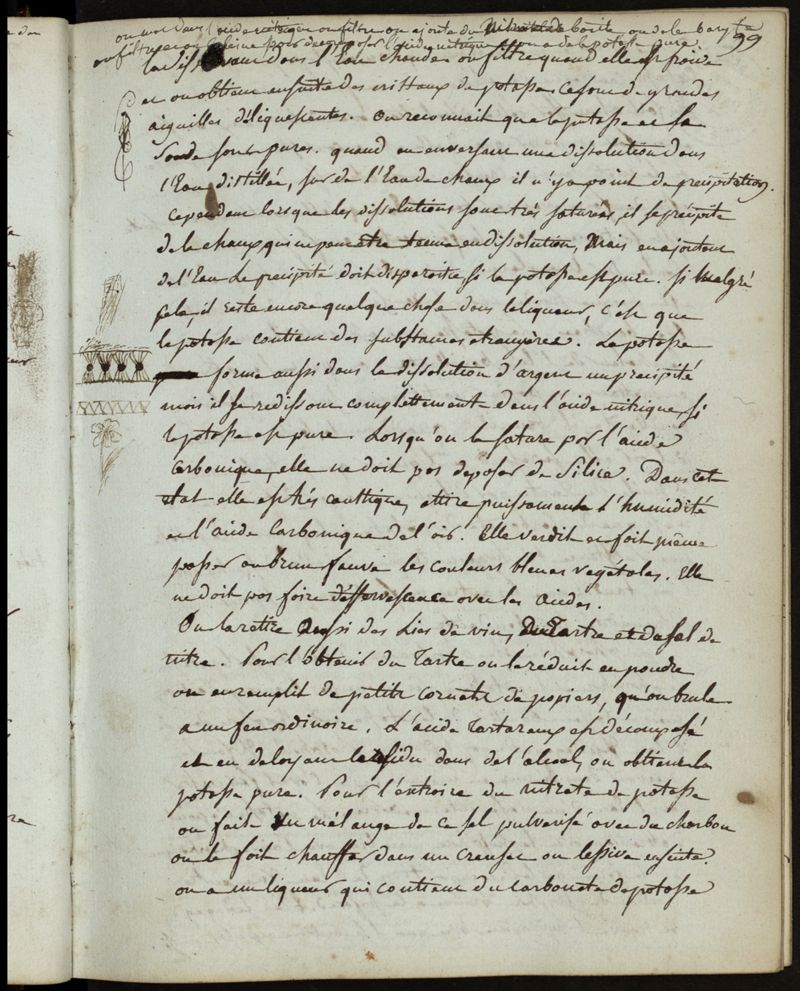 99
on met dans l'acide nitrique on filtre on ajoute du Nitrate de barite, ou de la baryte
on filtre
la dissout dans l'Eau chaude on filtre quand elle est froide
et on obtient ensuite des cristaux de potasse ce sont de grandes
aiguilles déliquescentes. On reconnait que la potasse et la
Soude sont pures. quand en en versant une dissolution dans
l'Eau distillée, sur de l'Eau de chaux il n'y a point de precipitation.
Cependant lorsque les dissolutions sont très saturées, il se précipite
de la chaux qui ne peut etre tenue en dissolution, Mais en ajoutant
de l'Eau le precipité doit disparoitre si la potasse est pure. Si Malgré
cela, il reste encore quelque chose dans la liqueur, c'est que
la potasse contient des substances etrangères. La potasse
forme aussi dans la dissolution d'argent un precipité
mais il se redissout complettement dans l'acide nitrique, si
la potasse est pure. Lorsqu'on la sature par l'acide
Carbonique, elle ne doit pas deposer de Silice. Dans cet
etat elle est très caustique, attire puissament l'humidité
et l'acide Carbonique de l'air. Elle verdit et fait même
passer au brun fauve les couleurs bleues végétales. Elle
ne doit pas faire d'effervescence avec les acides.
On la retire Aussi des Lies de vin, Du Tartre et du sel de
nitre. Pour l'obtenir du Tartre on le réduit en poudre
on en remplit de petits cornets de papiers, qu'on brule
a un feu ordinaire. L'acide Tartareux est décomposé
et en delayant le résidu dans de l'alcool, on obtient la
potasse pure. Pour l'extraire du nitrate de potasse
on fait Un mélange de ce sel pulverisé avec du charbon
on le fait chauffer dans un creuset on lessive ensuite.
on a un liqueur qui contient du Carbonate de potasse